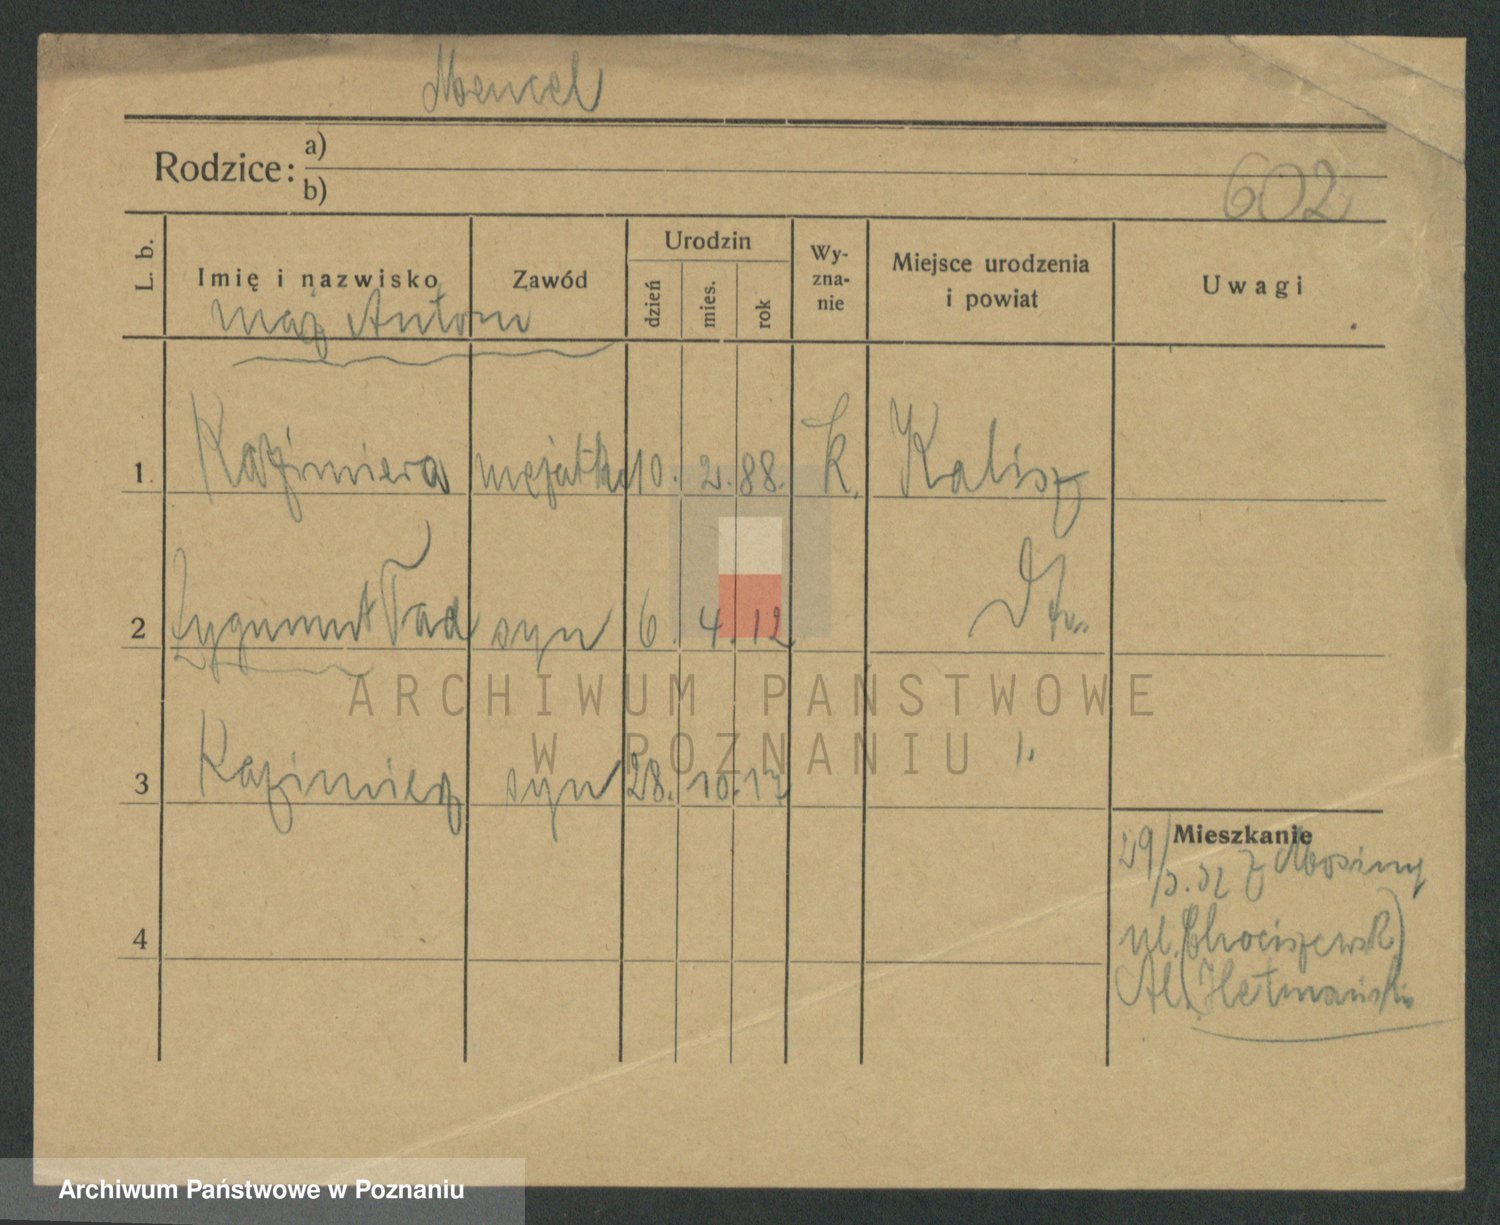 Mencel
Rodzice: a)
b)
602
L. b. Imię i nazwisko Zawód Urodzin dzień mies. rok Wy-zna-nie Miejsce urodzenia i powiat Uwagi
mąż Antoni
1. Kazimiera mężatka 10. 2. 88. k. Kalisz
2 Zygmunt Tad syn 6. 4. 12
3 Kazimierz syn 28. 10. 17 "
4
Mieszkanie
z Mosiny
ul. (Chociszewsk)
Al. Hetmańska
ARCHIWUM PAŃSTWOWE
W POZNANIU
Archiwum Państwowe w Poznaniu